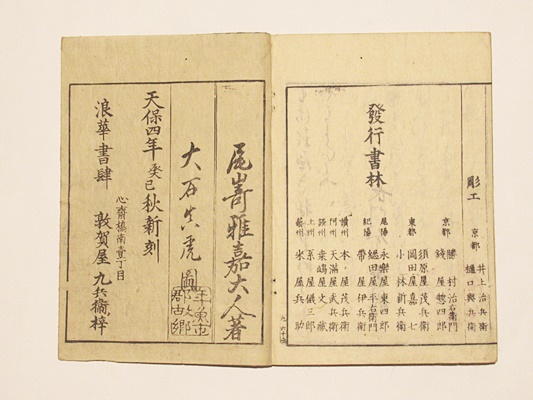 彫工
京都 井上治兵衛
樋口與兵衛
發行書林
京都 勝村治右衛門
錢屋惣四郎
東都 須原屋茂兵衛
岡田屋嘉七
小林新兵衛
尾陽 永樂屋東四郎
紀陽 田屋平右衛門
帶屋伊兵衛
讃州 本屋茂兵衛
阿州 天滿屋武兵衛
嶋屋文蔵
上州 屋儀三郎
藝州 米屋兵助
尾嵜雅嘉大人著
大石真虎圖
天保四年癸巳秋新刻
浪華書肆
心齋橋南壹丁目
敦賀屋九兵衞梓